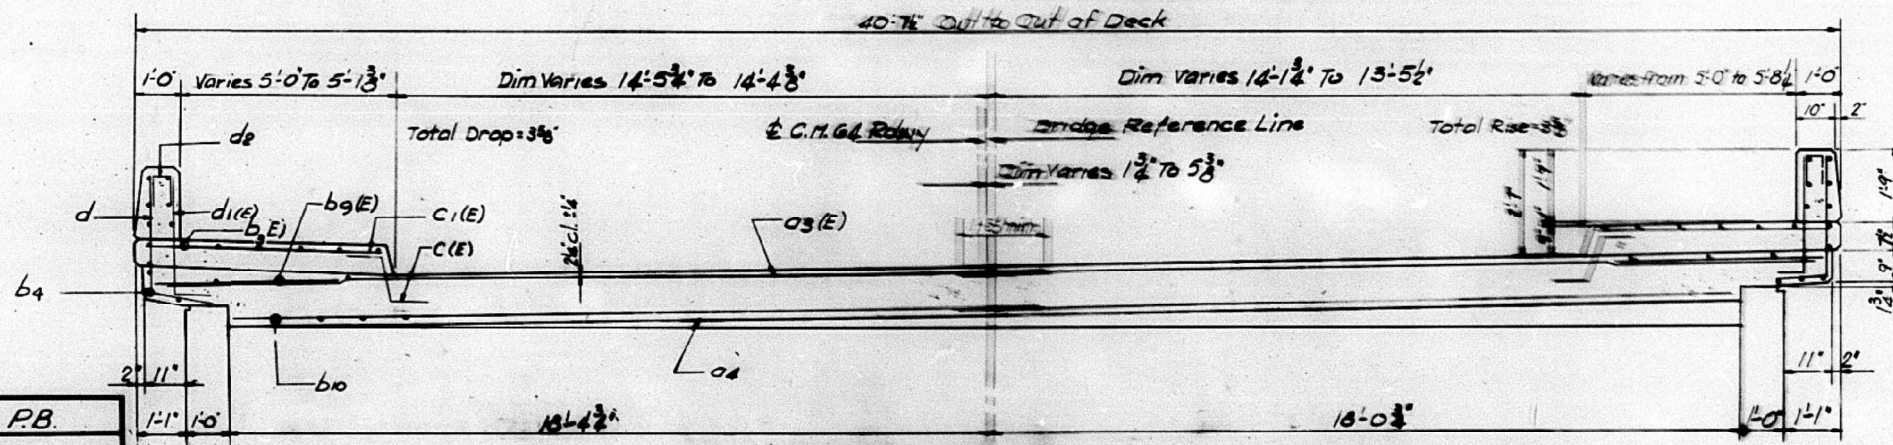 40'-7½" Out to Out of Deck
1'-0" Varies 5'-0" To 5'-1⅜" Dim Varies 14'-5¾" To 14'-4⅜" Dim Varies 14'-1¾" To 13'-5½" Varies from 5'-0" to 5'-8¼ 1'-0"
10" 2"
d2 Total Drop=3⅝" ℄ C.M. 64 Rdwy Bridge Reference Line Total Rise=
Dim Varies 1¾" To 5⅜"
d d1(E) b9(E) c1(E) a3(E) 1'-9"
b9(E) c(E) 2¼" Cl.
b4 9"
b10 a4
2" 11" 11" 2"
P.B. 1'-1" 1'-0" 18'-4¾" 18'-0¾" 1'-0" 1'-1"